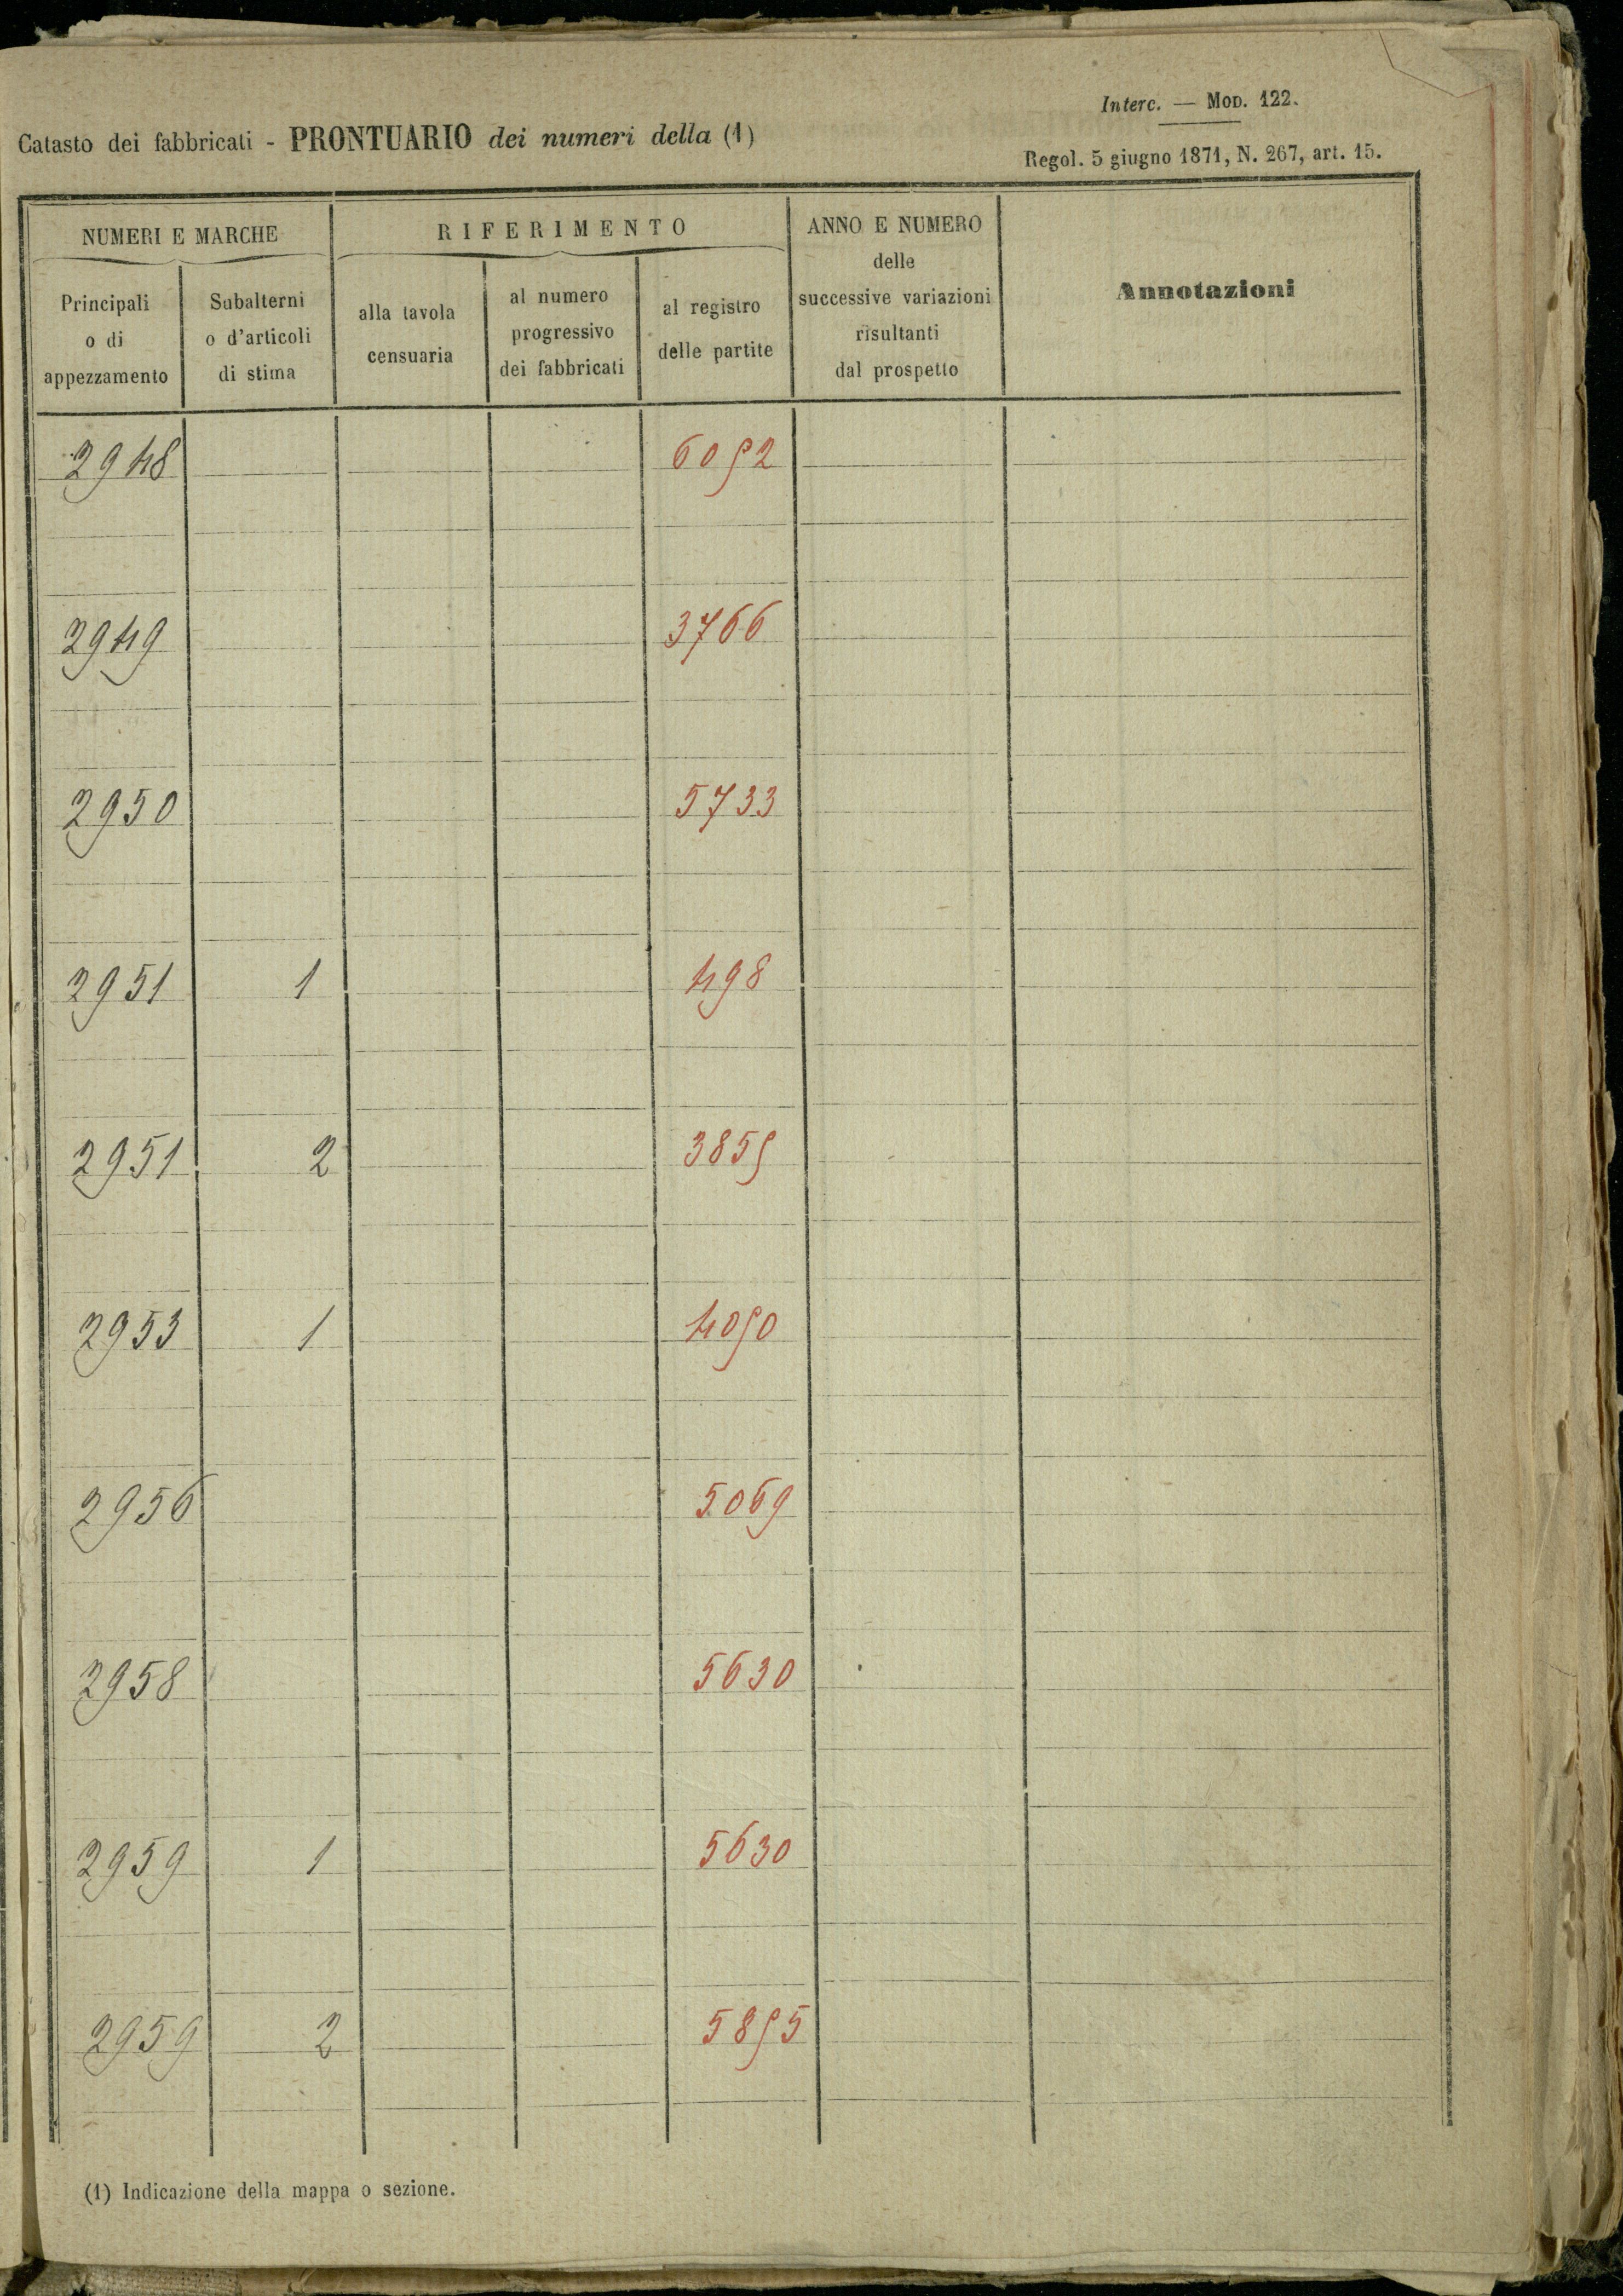 Interc. — Mod. 122.
Catasto dei fabbricati - PRONTUARIO dei numeri della (1)
Regol. 5 giugno 1871, N. 267, art. 15.
NUMERI E MARCHE
RIFERIMENTO
ANNO E NUMERO
delle
successive variazioni
risultanti
dal prospetto
Annotazioni
Principali
o di
appezzamento
Subalterni
o d'articoli
di stima
alla tavola
censuaria
al numero
progressivo
dei fabbricati
al registro
delle partite
2948 6052
2949 3766
2950 5733
2951 1 498
2951 2 3855
2953 1 4050
2956 5069
2958 5630
2959 1 5630
2959 2 5855
(1) Indicazione della mappa o sezione.